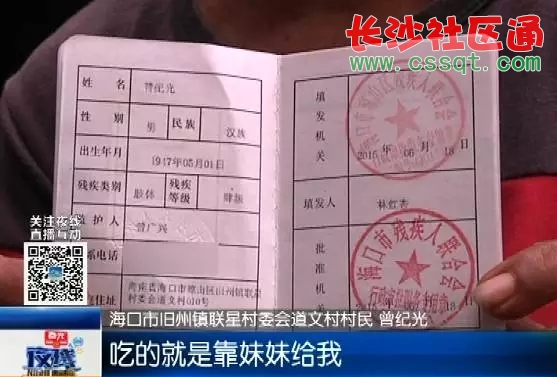 长沙社区通
www.cssqt.com
姓名 曾纪光
性别 男 民族 汉族
出生年月 1947年05月01日
残疾类别 肢体 残疾等级 肆级
监护人 曾广兴
系电话
海南省海口市琼山区旧州镇联星村委会道文村010号
填发机关
2015 06 18日
填发人 林红杏
批准机关
海口市残疾人联合会
关注夜线
直播互动
海口市旧州镇联星村委会道文村村民 曾纪光
夜线
吃的就是靠妹妹给我